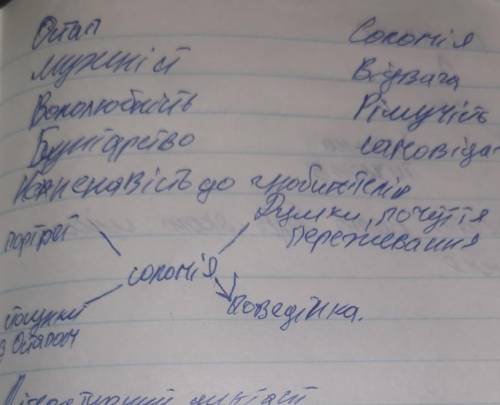 Остап Соломія
Мужніст Відвага
Волелюбність Рішучість
Бунтарство самовіда
Ненависть до гнобителів
Думки, почуття
портрет переживання
соломія
поведінка.
стосунки
з Остапом